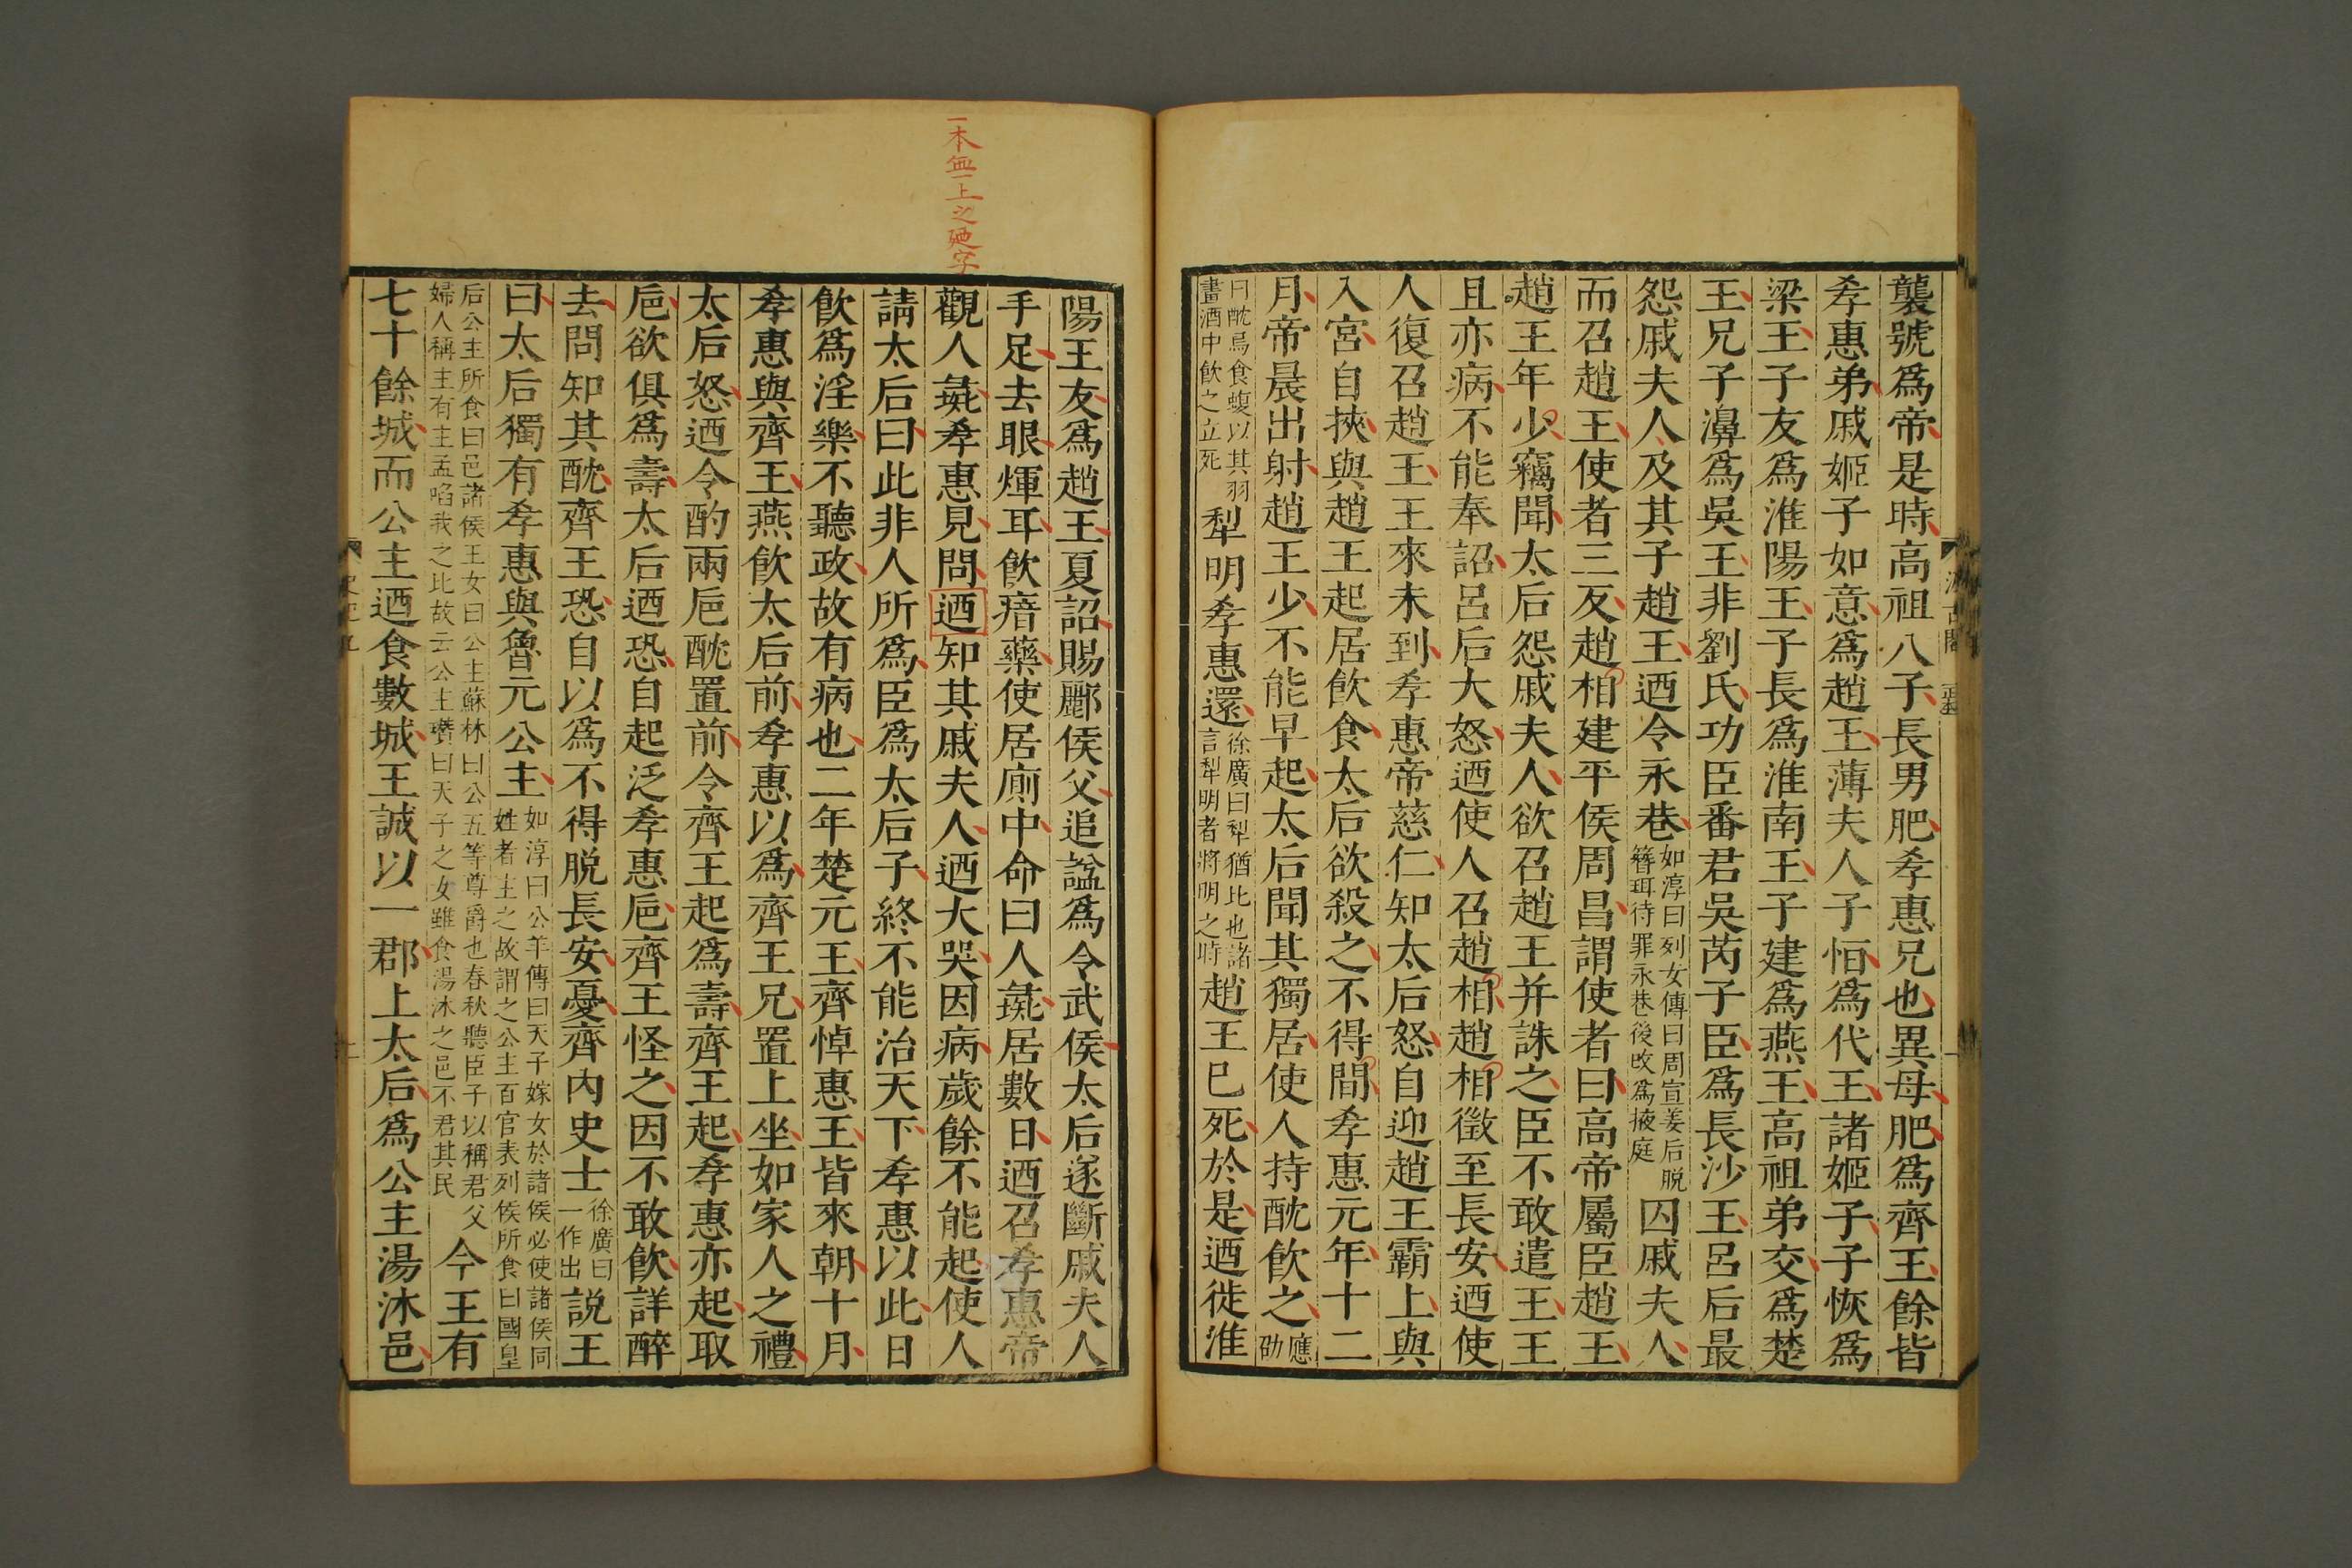 襲號爲帝是時高祖八子長男肥孝惠兄也異母肥爲齊王餘皆
孝惠弟戚姬子如意爲趙王薄夫人子恒爲代王諸姬子子恢爲
梁王子友爲淮陽王子長爲淮南王子建爲燕王高祖弟交爲楚
王兄子濞爲吳王非劉氏功臣番君吳芮子臣爲長沙王呂后最
怨戚夫人及其子趙王迺令永巷如淳曰列女傳曰周宣姜后脫簪珥待罪永巷後改爲掖庭囚戚夫人
而召趙王使者三反趙相建平侯周昌謂使者曰高帝屬臣趙王
趙王年少竊聞太后怨戚夫人欲召趙王并誅之臣不敢遣王王
且亦病不能奉詔呂后大怒迺使人召趙相趙相徵至長安迺使
人復召趙王王來未到孝惠帝慈仁知太后怒自迎趙王霸上與
入宮自挾與趙王起居飲食太后欲殺之不得間孝惠元年十二
月帝晨出射趙王少不能早起太后聞其獨居使人持酖飲之應劭
曰酖鳥食蝮以其羽畫酒中飲之立死犁明孝惠還徐廣曰犁猶比也諸言犁明者將明之時趙王已死於是迺徙淮
陽王友爲趙王夏詔賜酈侯父追諡爲令武侯太后遂斷戚夫人
手足去眼煇耳飲瘖藥使居廁中命曰人彘居數日迺召孝惠帝
觀人彘孝惠見問迺知其戚夫人迺大哭因病歲餘不能起使人
請太后曰此非人所爲臣爲太后子終不能治天下孝惠以此日
飲爲淫樂不聽政故有病也二年楚元王齊悼惠王皆來朝十月
孝惠與齊王燕飲太后前孝惠以爲齊王兄置上坐如家人之禮
太后怒迺令酌兩巵酖置前令齊王起爲壽齊王起孝惠亦起取
巵欲俱爲壽太后迺恐自起泛孝惠巵齊王怪之因不敢飲詳醉
去問知其酖齊王恐自以爲不得脫長安憂齊內史士徐廣曰一作出說王
曰太后獨有孝惠與魯元公主如淳曰公羊傳曰天子嫁女於諸侯必使諸侯同姓者主之故謂之公主百官表列侯所食曰國皇
后公主所食曰邑諸侯王女曰公主蘇林曰公五等尊爵也春秋聽臣子以稱君父婦人稱主有主孟啗我之比故云公主瓚曰天子之女雖食湯沐之邑不君其民今王有
七十餘城而公主迺食數城王誠以一郡上太后爲公主湯沐邑
一本無上之廼字